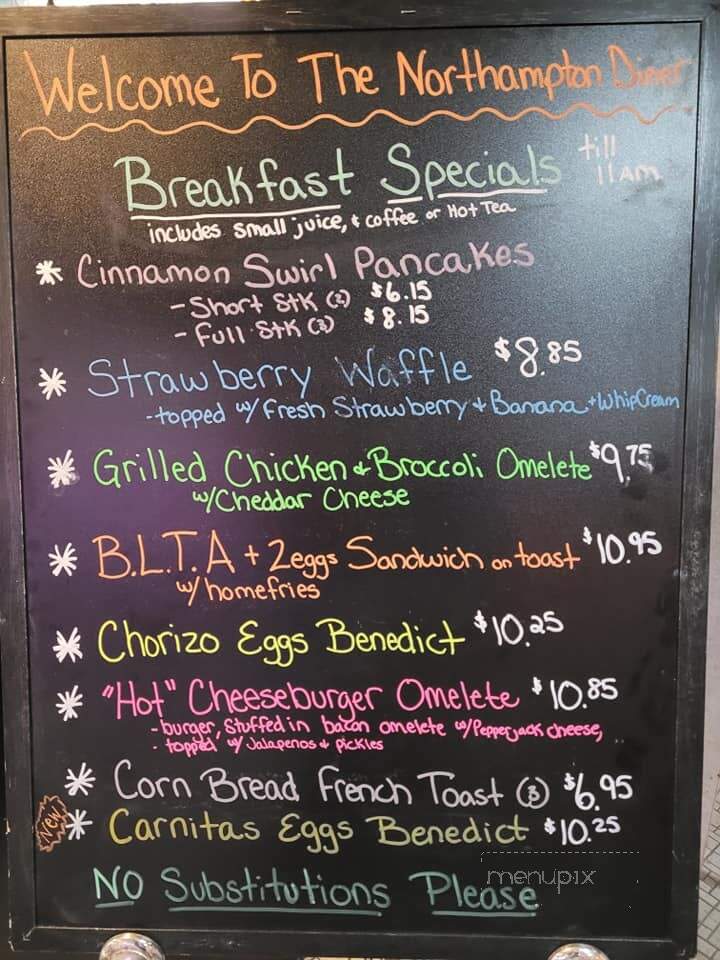 Welcome To The Northampton Diner
Breakfast Specials till 11AM
includes small juice, & coffee or Hot Tea
* Cinnamon Swirl Pancakes
- Short Stk (2) $6.15
- Full Stk (3) $8.15
* Strawberry Waffle $8.85
- topped w/ Fresh Strawberry + Banana + Whip Cream
* Grilled Chicken & Broccoli Omelete $9.75
w/ Cheddar Cheese
* B.L.T.A + 2 eggs Sandwich on toast $10.95
w/ homefries
* Chorizo Eggs Benedict $10.25
* "Hot" Cheeseburger Omelete $10.85
- burger, stuffed in bacon omelete w/ Pepperjack cheese,
- topped w/ Jalapenos & pickles
* Corn Bread French Toast (3) $6.95
New * Carnitas Eggs Benedict $10.25
NO Substitutions Please
menupix